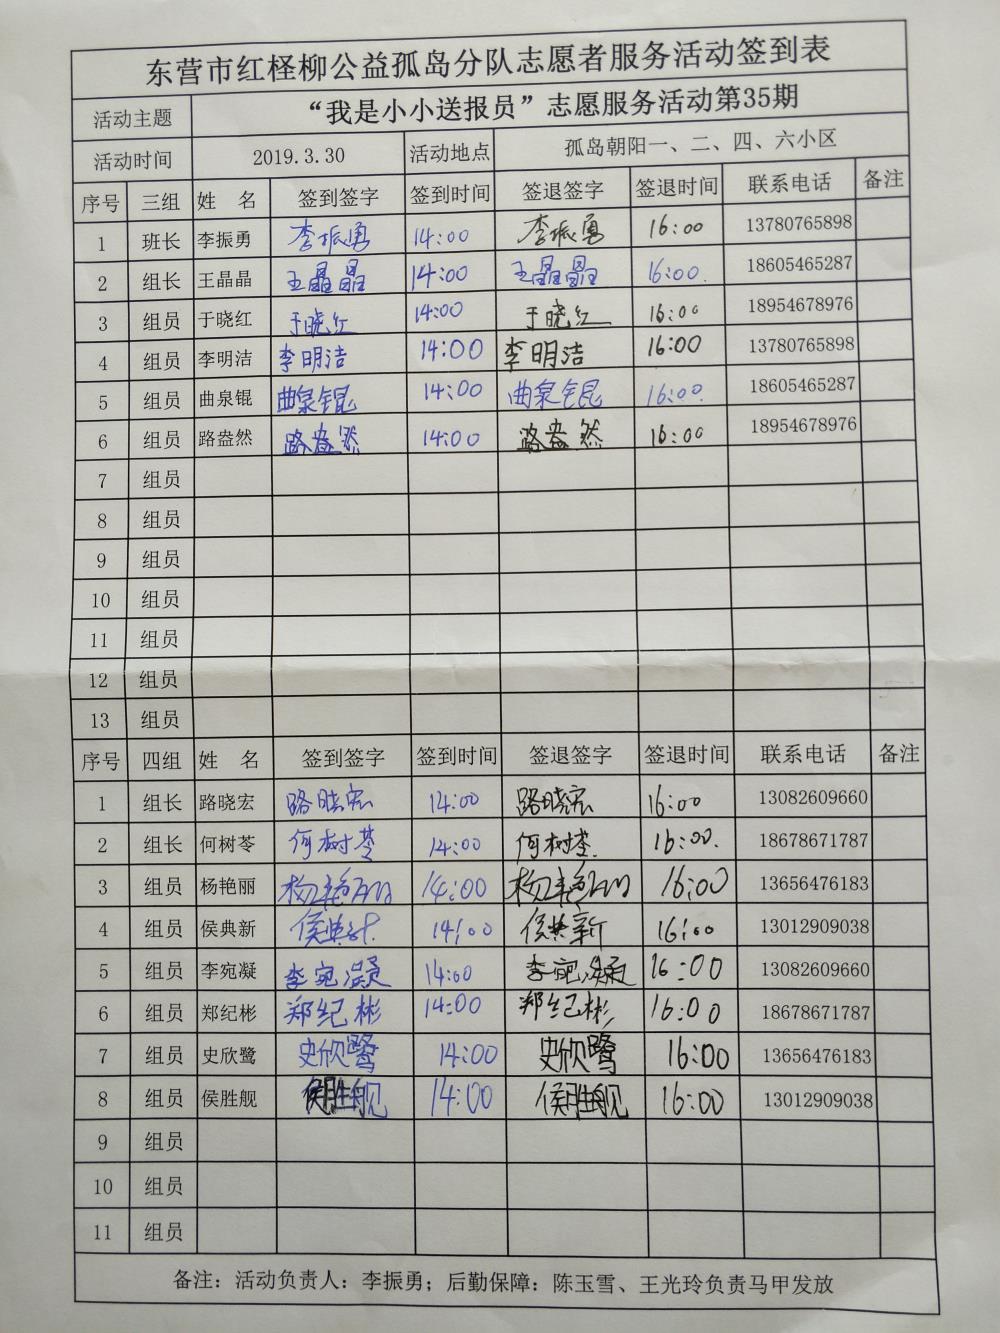 东营市红柽柳公益孤岛分队志愿者服务活动签到表
活动主题 “我是小小送报员”志愿服务活动第35期
活动时间 2019.3.30 活动地点 孤岛朝阳一、二、四、六小区
序号 三组 姓 名 签到签字 签到时间 签退签字 签退时间 联系电话 备注
1 班长 李振勇 李振勇 14:00 李振勇 16:00 13780765898
2 组长 王晶晶 王晶晶 14:00 王晶晶 16:00. 18605465287
3 组员 于晓红 于晓红 14:00 于晓红 16:00 18954678976
4 组员 李明洁 李明洁 14:00 李明洁 16:00 13780765898
5 组员 曲泉锟 曲泉锟 14:00 曲泉锟 16:00. 18605465287
6 组员 路盎然 路盎然 14:00 路盎然 16:00 18954678976
7 组员
8 组员
9 组员
10 组员
11 组员
12 组员
13 组员
序号 四组 姓 名 签到签字 签到时间 签退签字 签退时间 联系电话 备注
1 组长 路晓宏 路晓宏 14:00 路晓宏 16:00 13082609660
2 组长 何树苓 何树苓 14:00 何树苓. 16:00. 18678671787
3 组员 杨艳丽 杨艳丽 14:00 杨艳丽 16:00 13656476183
4 组员 侯典新 侯典新 14:00 侯典新 16:00 13012909038
5 组员 李宛凝 李宛凝 14:00 李宛凝 16:00 13082609660
6 组员 郑纪彬 郑纪彬 14:00 郑纪彬 16:00 18678671787
7 组员 史欣鹭 史欣鹭 14:00 史欣鹭 16:00 13656476183
8 组员 侯胜舰 侯胜舰 14:00 侯胜舰 16:00 13012909038
9 组员
10 组员
11 组员
备注：活动负责人：李振勇；后勤保障：陈玉雪、王光玲负责马甲发放